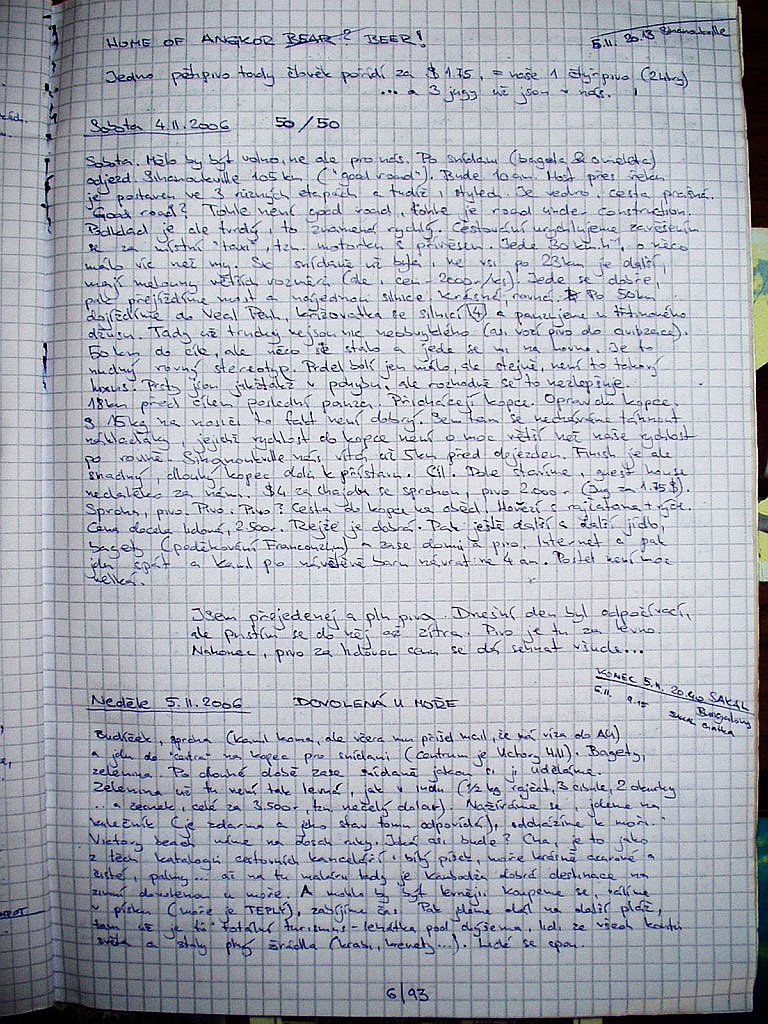 HOME OF ANGKOR BEAR? BEER!
5.11. 20.13 Sihanoukville
Jedno pětipivo tady člověk pořídí za $ 1.75, = naše 1 čtyřpivo (24kč)
... a 3 jugy už jsou v nás.
Sobota 4.11.2006 50/50
Sobota. Mělo by být volno, ne ale pro nás. Po snídani (bageta & omeleta)
odjezd. Sihanoukville 105 km ("good road"). Bude 10 am. Most přes řeku
je postaven ve 3 různých etapách a tudíž i stylech. Je vedro, cesta prašná.
"Good road"? Tohle není good road, tohle je road under construction.
Podklad je ale tvrdý, to znamená rychlý. Cestování urychlujeme zavěšením
se za místní "taxi", tzn. motorku s přívěsem. Jede 30 km/h, o něco
málo víc než my. Sic snídaně už byla, ve vsi po 23 km je další,
mají melouny větších rozměrů (ale i cen - 2000r/ks). Jede se dobře,
pak přejíždíme most a najednou silnice krásná, rovná. Po 50km
dojíždíme do Veal Renh, křižovatka se silnicí 4 a pauzujeme u třtinového
džusu. Tady už trucky nejsou nic neobvyklého (asi vozí pivo do civilizace).
50 km do cíle, ale něco se stalo a jede se mi na hovno. Je to
nudný rovný stereotyp. Prdel bolí jen málo, ale stejně, není to takový
luxus. Prsty jsou jakžtakž v pohybu, ale rozhodně se to nezlepšuje.
18km před cílem poslední pauza. Přicházejí kopce. Opravdu kopce.
S 15kg na nosiči to fakt není dobrý. Sem tam se necháváme táhnout
náklaďáky, jejichž rychlost do kopce není o moc větší než naše rychlost
po rovině. Sihanoukville nás vítá už 5km před dojezdem. Finish je ale
snadný, dlouhý kopec dolů k přístavu. Cíl. Dole stavíme, guest house
nedaleko za námi. $4 za chajdu se sprchou, pivo 2.000r (jug za 1.75$).
Sprcha, pivo. Pivo. Pivo? Cesta do kopce na oběd. Hovězí s rajčatama + rýže.
Cena docela lidová, 2.500r. Rejže je dobrá. Pak ještě další a další jídlo,
bagety (poděkování Francouzům) a zase domů a pivo, Internet a pak
jdu spát a Kamil po návštěvě baru návrat ve 4 am. Postel není moc
velká.
Jsem přejedenej a plnej piva. Dnešní den byl odpočívací,
ale pustím se do něj až zítra. Pivo je tu za levno.
Nakonec, pivo za lidovou cenu se dá sehnat všude...
KONEC 5.11. 20.40 SAKAL
6.11. 9.15 Bungalovy
Neděle 5.11.2006 DOVOLENÁ U MOŘE
Budíček, sprcha (Kamil koma, ale včera mu přišel mail, že má víza do AU)
a jdu do "centra" na kopec pro snídani (centrum je Victory Hill). Bagety,
zelenina. Po dlouhé době zase snídaně jakou si ji uděláme.
Zelenina už tu není tak levná, jak v Indii (1/2 kg rajčat, 3 cibule, 2 okurky
... a česnek, celé za 3.500r, tzn necelý dolar). Nažíráme se, jdeme na
kulečník (je zdarma a jeho stav tomu odpovídá), odcházíme k moři.
Victory beach máme na dosah ruky. Jaká asi bude? Cha, je to jako
z těch katalogů cestovních kanceláří: bílý písek, moře krásně azurové a
čisté, palmy... až na tu malárii tady je Kambodža dobrá destinace na
zimní dovolenou u moře. A mohlo by být levněji. Koupeme se, válíme
v písku (moře je TEPLÝ), zabíjíme čas. Pak jdeme dál na další pláž,
tam už je to "totální turismus" - lehátka pod doškama, lidi ze všech koutů
světa a stoly plný žrádla (krabi, krevety...). Lidé se
6/93